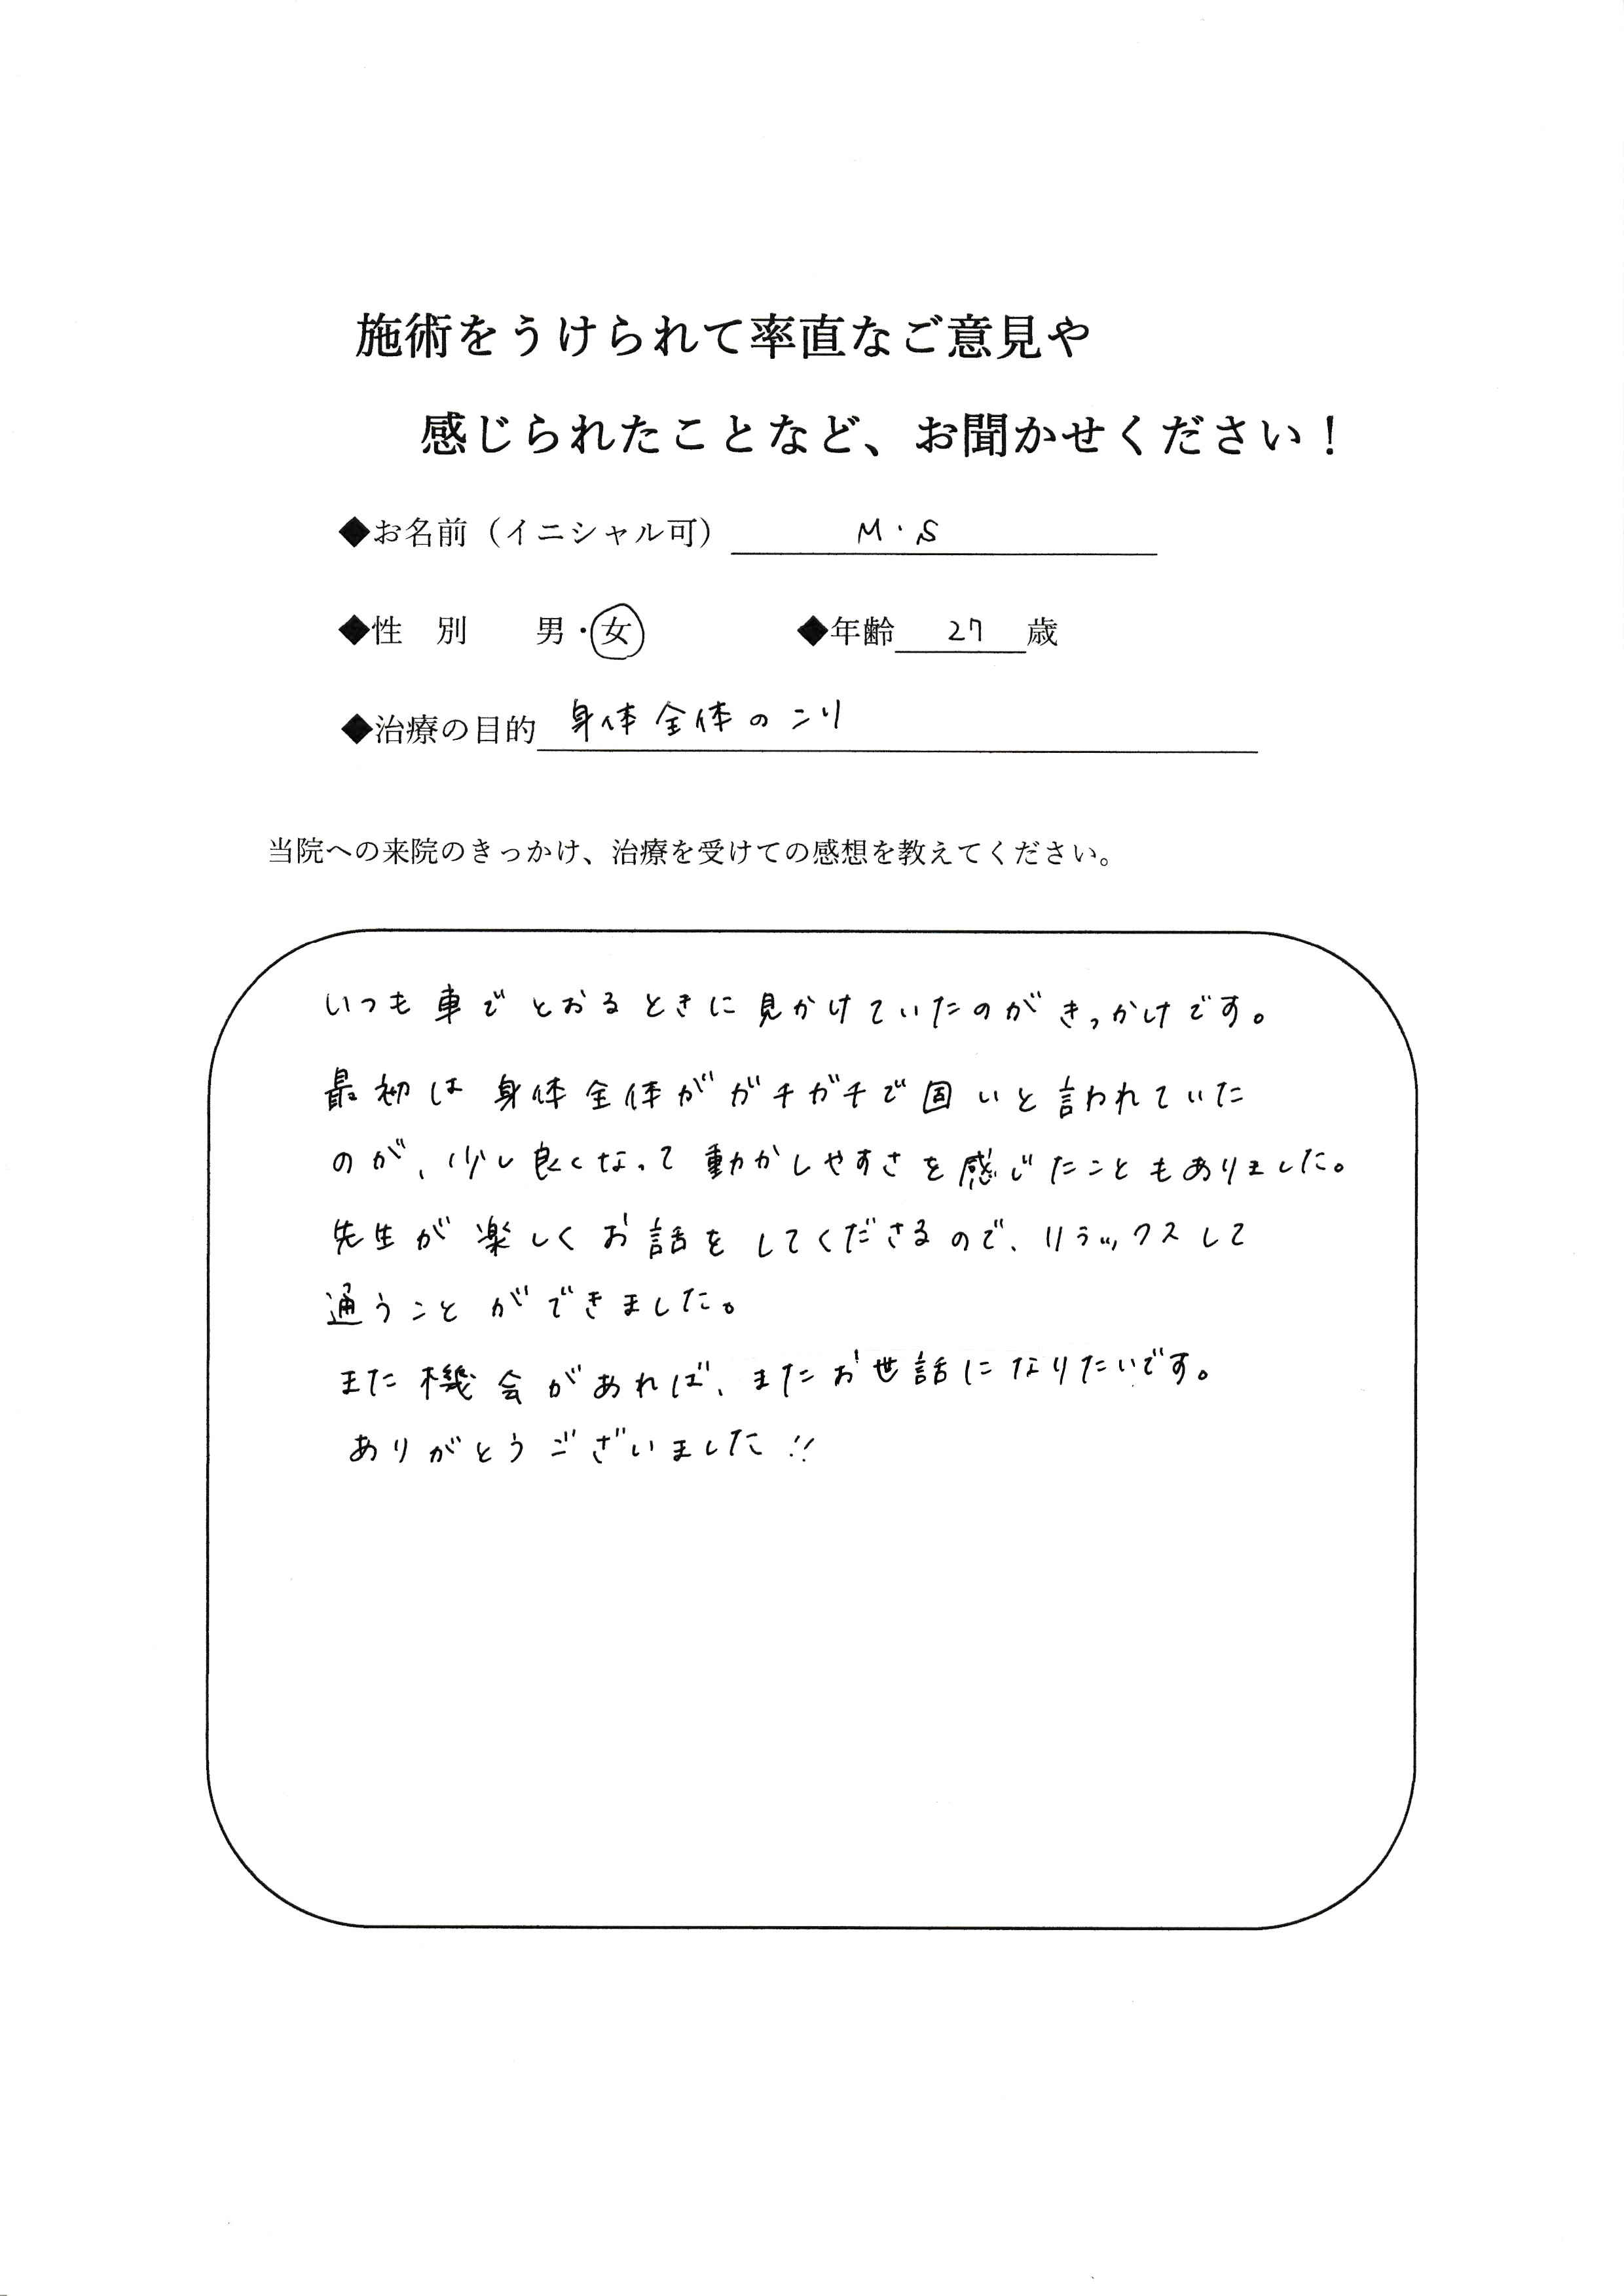 施術をうけられて率直なご意見や
感じられたことなど、お聞かせください！
◆お名前（イニシャル可） M・S
◆性　別　　男・女　　◆年齢 27 歳
◆治療の目的 身体全体のこり
当院への来院のきっかけ、治療を受けての感想を教えてください。
いつも車でとおるときに見かけていたのがきっかけです。
最初は身体全体がガチガチで固いと言われていた
のが、少し良くなって動かしやすさを感じたこともありました。
先生が楽しくお話をしてくださるので、リラックスして
通うことができました。
また機会があれば、またお世話になりたいです。
ありがとうございました!!